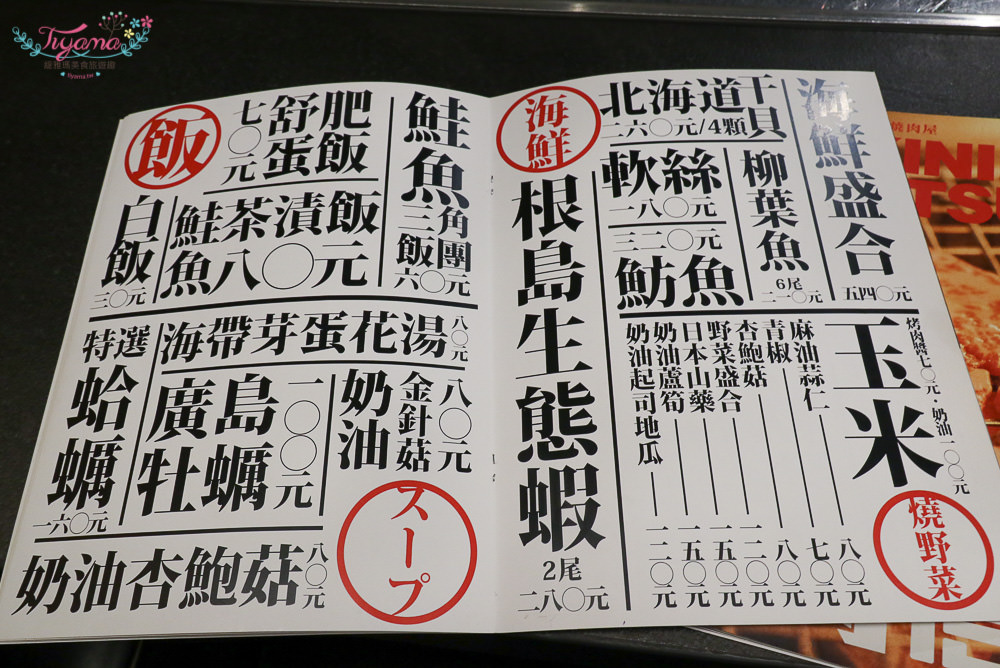 Tiyama
緹雅瑪美食旅遊趣
tiyama.tw
海鮮
海鮮盛合
五四〇元
北海道干貝
二六〇元/4顆
柳葉魚
6尾
二一〇元
軟絲
二八〇元
三二〇元
魴魚
根島生態蝦
2尾
二八〇元
燒野菜
玉米
烤肉醬七〇元・奶油一〇〇元
麻油蒜仁 八〇元
青椒 七〇元
杏鮑菇 八〇元
野菜盛合 二〇〇元
日本山藥 一五〇元
奶油蘆筍 一五〇元
奶油起司地瓜 一二〇元
飯
鮭魚
三角飯團
六〇元
舒肥蛋飯
七〇元
鮭魚茶漬飯
八〇元
白飯
三〇元
スープ
海帶芽蛋花湯
八〇元
特選
蛤蠣
一六〇元
廣島牡蠣
一〇〇元
奶油金針菇
八〇元
奶油杏鮑菇
八〇元
燒肉屋